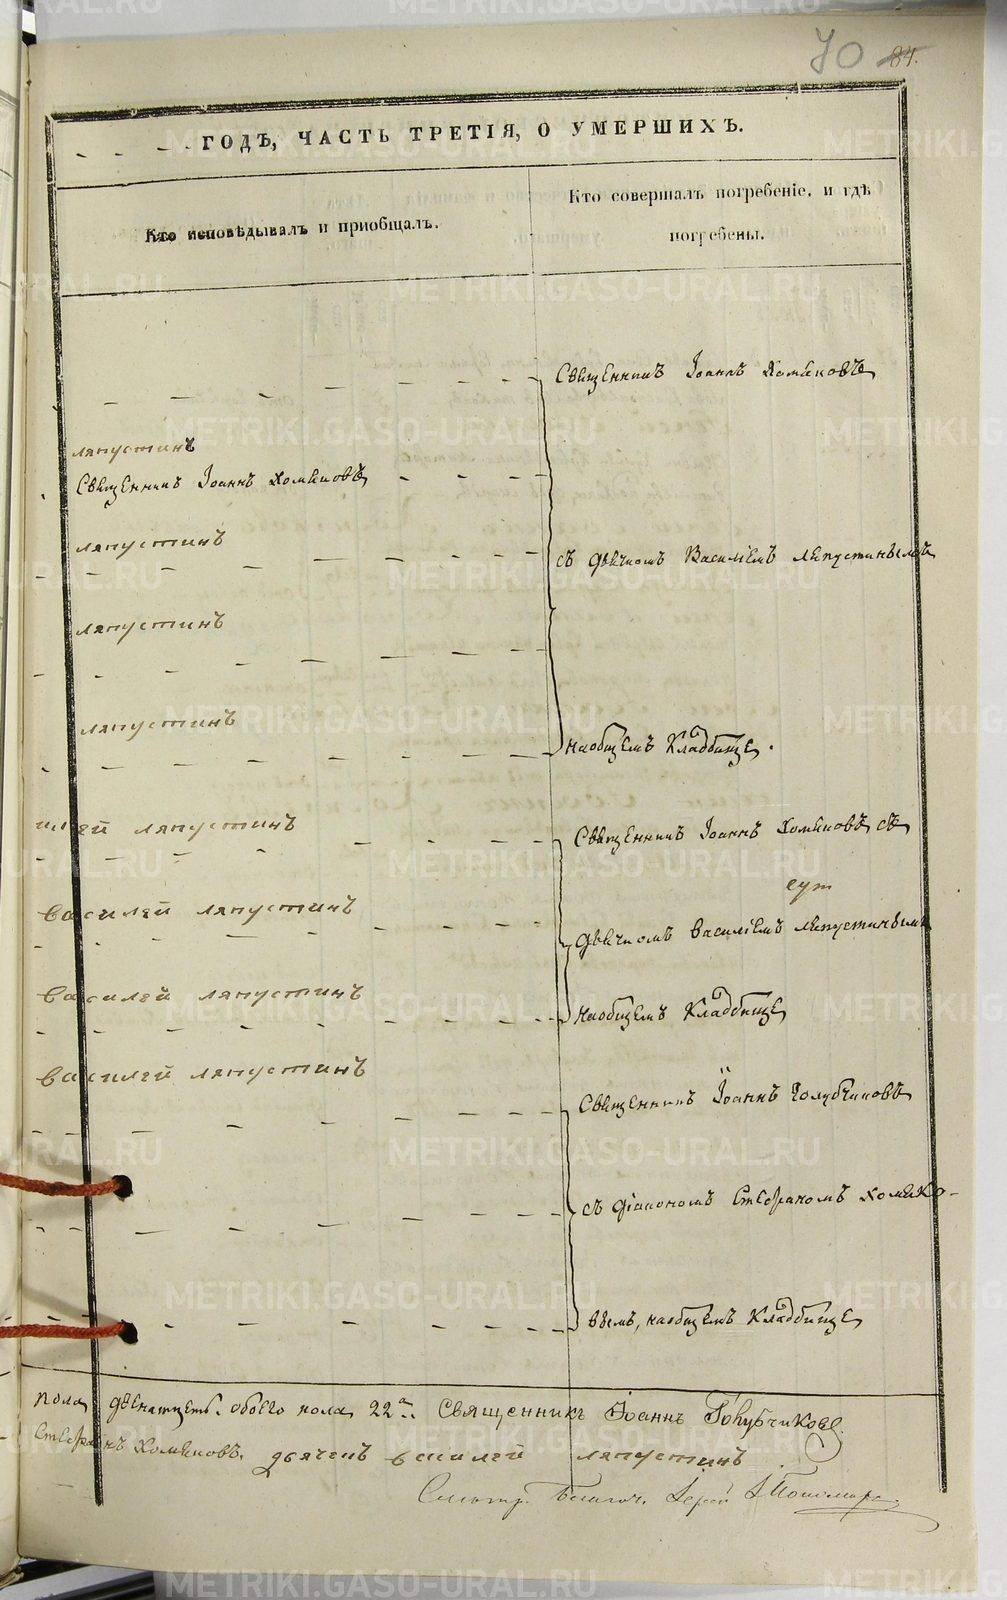 70 84.
ГОДЪ, ЧАСТЬ ТРЕТІЯ, О УМЕРШИХЪ.
Кто исповѣдывалъ и пріобщалъ.
Кто совершалъ погребеніе, и гдѣ
погребены.
Священникъ Іоаннъ Хомяковъ
ляпустинъ
Священникъ Іоаннъ Хомяковъ
ляпустинъ
съ дьячкомъ Василіемъ ляпустинымъ
ляпустинъ
ляпустинъ
на общемъ Кладбище.
ляпустинъ
Священникъ Іоаннъ Хомяковъ съ
василей ляпустинъ
дьячкомъ василіемъ ляпустинымъ
василей ляпустинъ
на общемъ Кладбище
василей ляпустинъ
Священникъ Іоаннъ Голубчиковъ
съ діакономъ Стефаномъ хомяко-
вымъ, на общемъ Кладбище
пола двенатцеть. обоего пола 22. Священникъ Іоаннъ Голубчиковъ.
Стефанъ Хомяковъ. дьячекъ василей ляпустинъ
METRIKI.GASO-URAL.RU